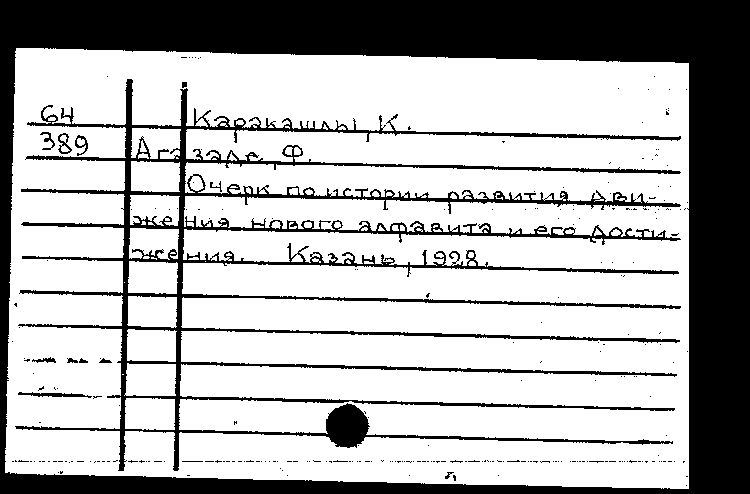 64 Каракашлы, К.
389 Агазаде, Ф.
Очерк по истории развития дви-
жения нового алфавита и его дости-
жения. Казань, 1928.